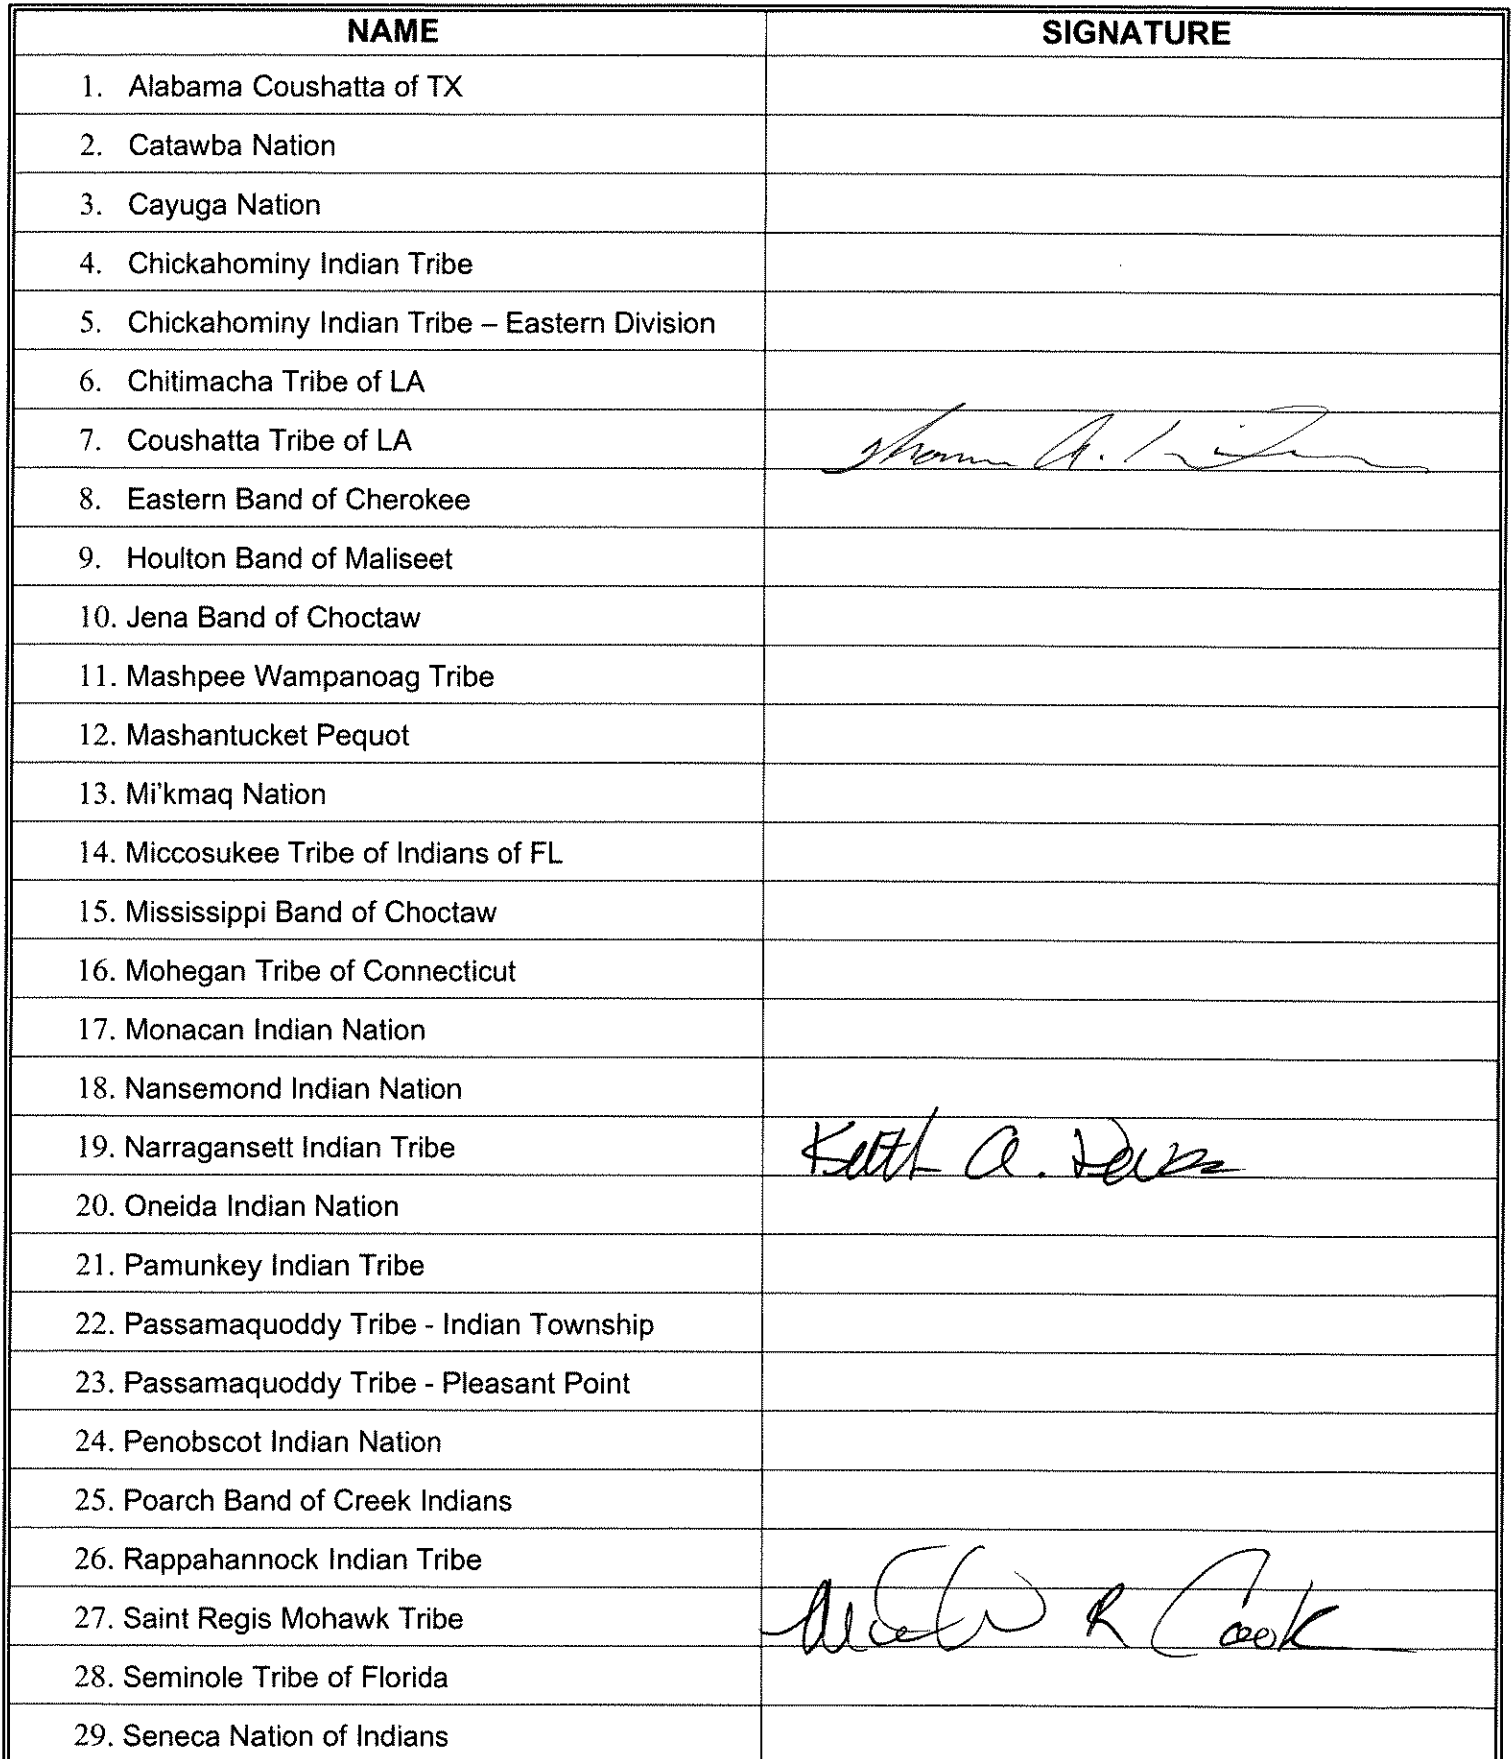 NAME SIGNATURE
1. Alabama Coushatta of TX
2. Catawba Nation
3. Cayuga Nation
4. Chickahominy Indian Tribe
5. Chickahominy Indian Tribe – Eastern Division
6. Chitimacha Tribe of LA
7. Coushatta Tribe of LA
8. Eastern Band of Cherokee
9. Houlton Band of Maliseet
10. Jena Band of Choctaw
11. Mashpee Wampanoag Tribe
12. Mashantucket Pequot
13. Mi'kmaq Nation
14. Miccosukee Tribe of Indians of FL
15. Mississippi Band of Choctaw
16. Mohegan Tribe of Connecticut
17. Monacan Indian Nation
18. Nansemond Indian Nation
19. Narragansett Indian Tribe Keith A.
20. Oneida Indian Nation
21. Pamunkey Indian Tribe
22. Passamaquoddy Tribe - Indian Township
23. Passamaquoddy Tribe - Pleasant Point
24. Penobscot Indian Nation
25. Poarch Band of Creek Indians
26. Rappahannock Indian Tribe
27. Saint Regis Mohawk Tribe R Cook
28. Seminole Tribe of Florida
29. Seneca Nation of Indians